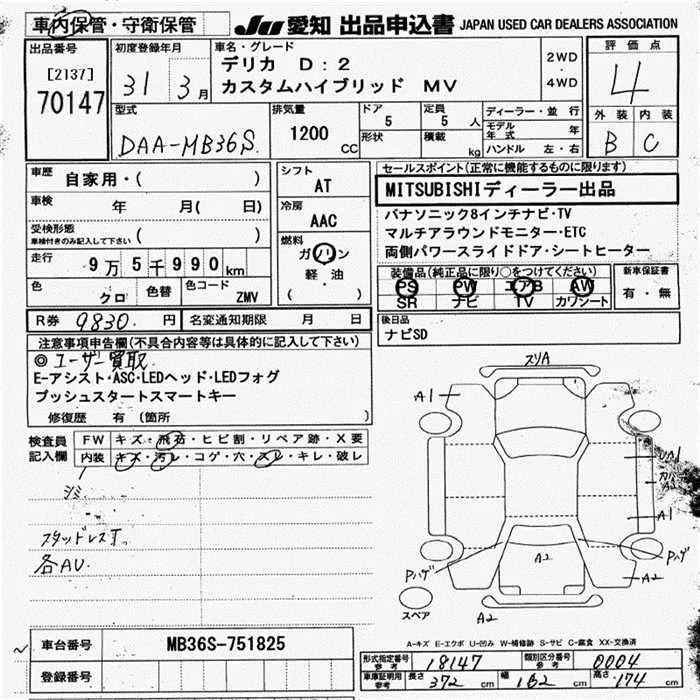 車内保管・守衛保管
JU 愛知 出品申込書 JAPAN USED CAR DEALERS ASSOCIATION
出品番号
[2137]
70147
初度登録年月
31 3月
車名・グレード
デリカ D:2
カスタムハイブリッド MV
2WD
・
4WD
評価点
4
外装 内装
B C
型式
DAA-MB36S
排気量
1200 CC
ドア
5
形状
定員
5 人
積載
kg
ディーラー・並行
モデル年式 年
ハンドル 左・右
車歴 自家用・( )
車検 年 月( 日)
受検形態
車検付きのみ記入して下さい ( )
走行 9万5千990km
色 クロ 色替 色コード ZMV
シフト
AT
冷房
AAC
燃料
ガソリン
軽・油
( ・ )
セールスポイント(正常に機能するものに限ります)
MITSUBISHIディーラー出品
パナソニック8インチナビ・TV
マルチアラウンドモニター・ETC
両側パワースライドドア・シートヒーター
装備品(純正品に限り○をつけてください)
PS PW エアB AW
SR ナビ TV カワシート
新車保証書
有・無
R券 9830. 円 名変通知期限 月 日
後日品
ナビSD
注意事項申告欄(不具合内容等は具体的に記入して下さい)
◎ユーザー買取
E-アシスト・ASC・LEDヘッド・LEDフォグ
プッシュスタートスマートキー
修復歴 有(箇所 )
検査員記入欄
FW キズ・飛石・ヒビ割・リペア跡・X要
内装 キズ・汚レ・コゲ・穴・スレ・キレ・破レ
シミ
スタッドレスT.
各AU.
スリA
A1
UA1
A2
A1
Pハゲ
A2
Pハゲ
A2
A2
スペア
A-キズ E-エクボ U-凹み W-補修跡 S-サビ C-腐食 XX-交換済
車台番号 MB36S-751825
登録番号
形式指定番号参考 18147 類別区分番号参考 0004
車庫証明用参考 長さ 372 cm 幅 162 cm 高さ 174 cm